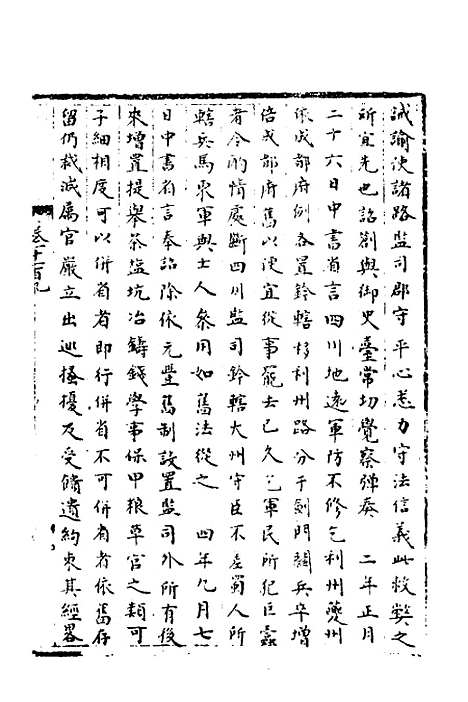 誡諭使諸路監司郡守平心悉力守法信義此救獘之
所宜先也詔劄與御史臺常切覺察弹奏　二年正月
二十六日中書省言四川地逺軍防不修乞利州夔州
依成都府例各置鈐轄移利州路分于劒門關兵卒增
倍成都府舊以便宜從事罷去已久乞軍民所犯巨蠧
者令酌情處斷四川監司鈐轄大州守臣不差蜀人所
轄兵馬東軍與士人叅用如舊法從之　四年九月七
日中書省言奉詔除依元豐舊制設置監司外所有後
來增置提舉茶塩坑冶鑄錢學事保甲粮草官之類可
子細相度可以併省者即行併省不可併省者依舊存
留仍裁减属官嚴立出廵搔擾及受饋遺約束其經畧